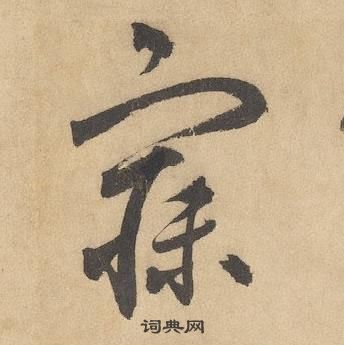 寐
词典网